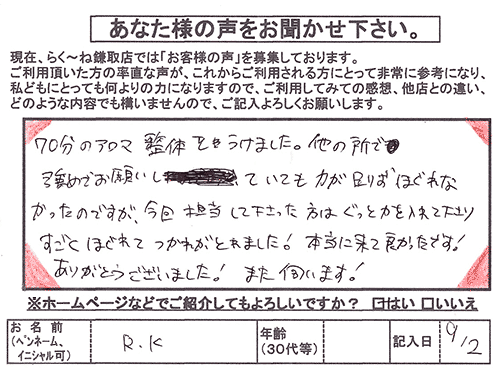 あなた様の声をお聞かせ下さい。
現在、らく～ね鎌取店では「お客様の声」を募集しております。
ご利用頂いた方の率直な声が、これからご利用される方にとって非常に参考になり、
私どもにとっても何よりの力になりますので、ご利用してみての感想、他店との違い、
どのような内容でも構いませんので、ご記入よろしくお願いします。
70分のアロマ 整体をうけました。他の所で
強めでお願いし ていても力が足りずほぐれな
かったのですが、今回 担当して下さった方はぐっと力を入れて下さり
すごくほぐれて つかれがとれました！本当に来て良かったです！
ありがとうございました！また伺います！
※ホームページなどでご紹介してもよろしいですか？ ☑はい ☐いいえ
お名前 (ペンネーム、イニシャル可) R.K 年齢 (30代等) 記入日 9/2